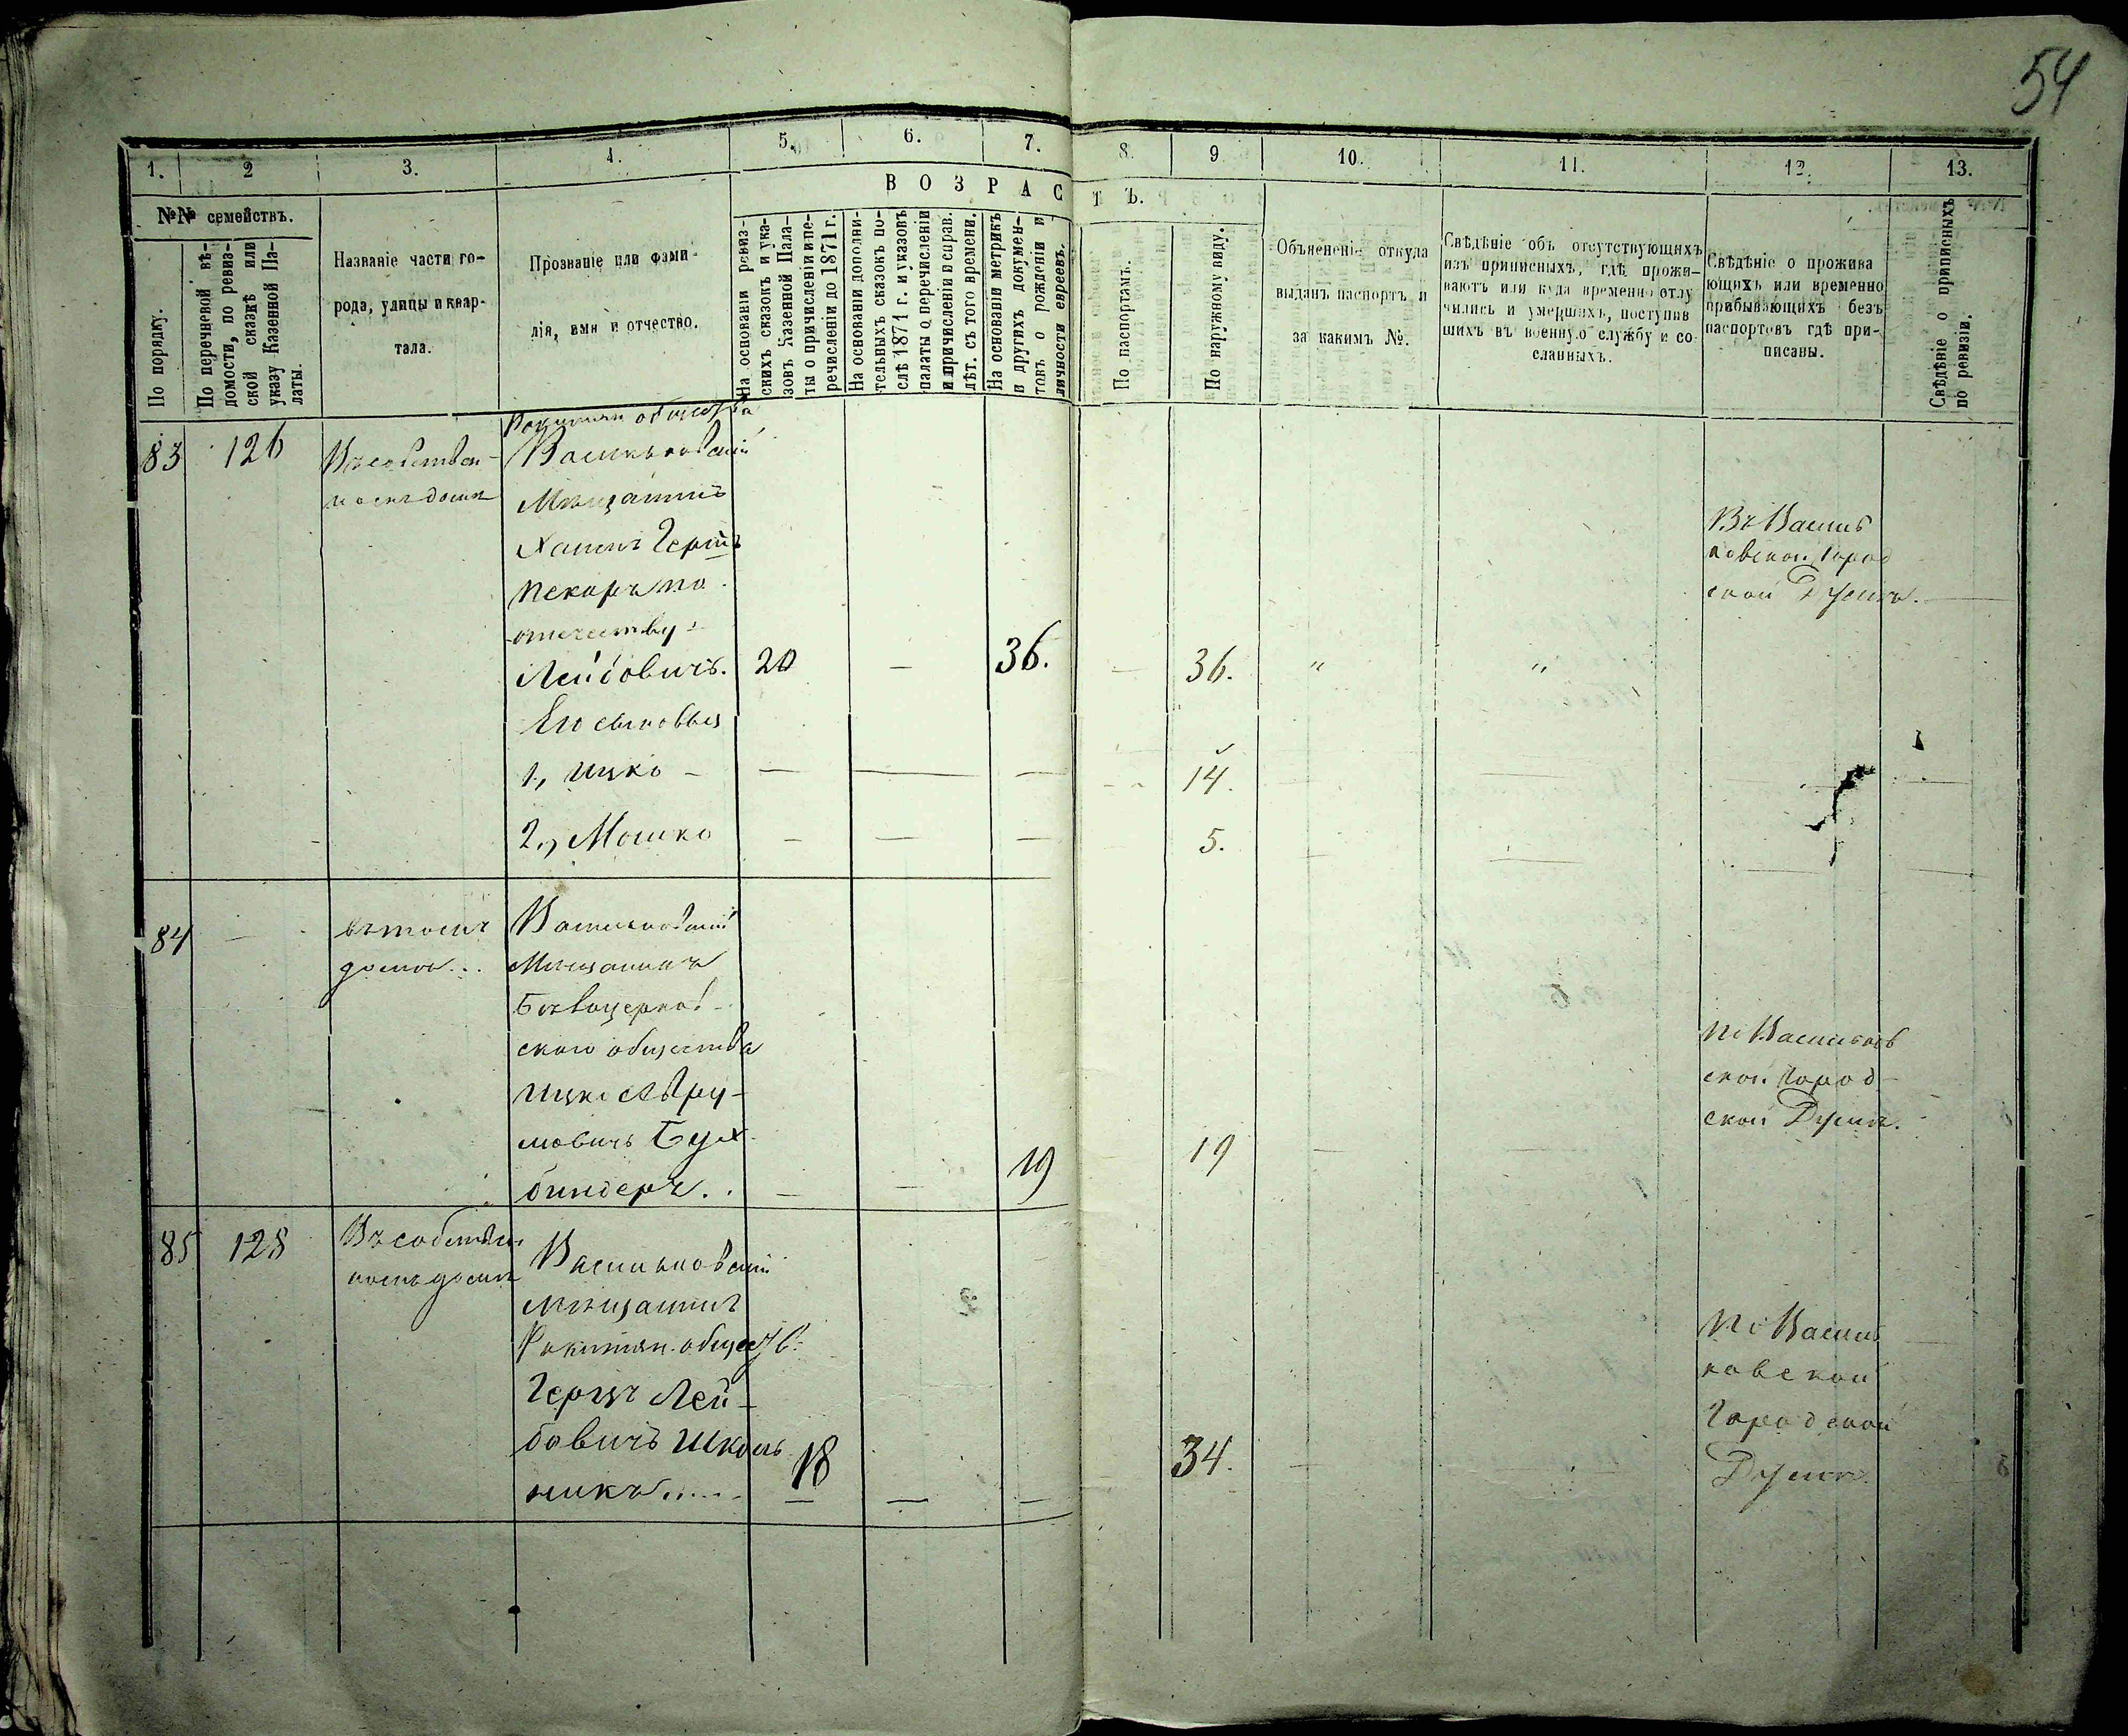 54
1. 2 3. 4. 5. 6. 7. 8. 9 10. 11. 12. 13.
ВОЗРАСТЪ.
№№ семействъ.
По порядку.
По перечневой вѣ-
домости, по ревиз-
ской сказкѣ или
указу Казенной Па-
латы.
Названіе части го-
рода, улицы и квар-
тала.
Прозваніе или фами-
лія, имя и отчество.
На основаніи ревиз-
скихъ сказокъ и ука-
зовъ Казенной Пала-
ты о причисленіи и пе-
речисленіи до 1871 г.
На основаніи дополни-
тельныхъ сказокъ по-
слѣ 1871 г. и указовъ
палаты о перечисленіи
и причисленіи и справ.
лѣт. съ того времени.
На основаніи метрикъ
и другихъ докумен-
товъ о рожденіи и
личности евреевъ.
По паспортамъ.
По наружному виду.
Объясненіе откуда
выданъ паспортъ и
за какимъ №.
Свѣдѣніе объ отсутствующихъ
изъ приписныхъ, гдѣ прожи-
ваютъ или куда временно отлу
чились и умершихъ, поступив
шихъ въ военную службу и со
сланныхъ.
Свѣдѣніе о прожива
ющихъ или временно
прибывающихъ безъ
паспортовъ гдѣ при-
писаны.
Свѣдѣніе о приписныхъ
по ревизіи.
83 126
Въ собствен-
номъ домѣ
Рокитян общества
Васильковскій
Мѣщанинъ
Хаимъ Герш
Пекарь по
отечеству
Лейбовичъ. 20 — 36. — 36. " "
Въ Василь
ковской Город
ской Думѣ.
Его сыновья
1, Ицко — — — — 14.
2, Мошко — — — 5.
84 —
въ томъ
домѣ..
Васильковскій
Мѣщанинъ
Бѣлоцерков-
скаго общества
Ицко Авру-
мовичъ Бух-
биндеръ.. — — 19 19
По Васильков
ской Город-
ской Думѣ.
85 128
Въ собствен
номъ домѣ
Васильковскій
Мѣщанинъ
Рокитян. обществ.
Герцъ Лей-
бовичъ Школь
никъ..... 18 — — 34.
По Василь
ковской
Городской
Думѣ.